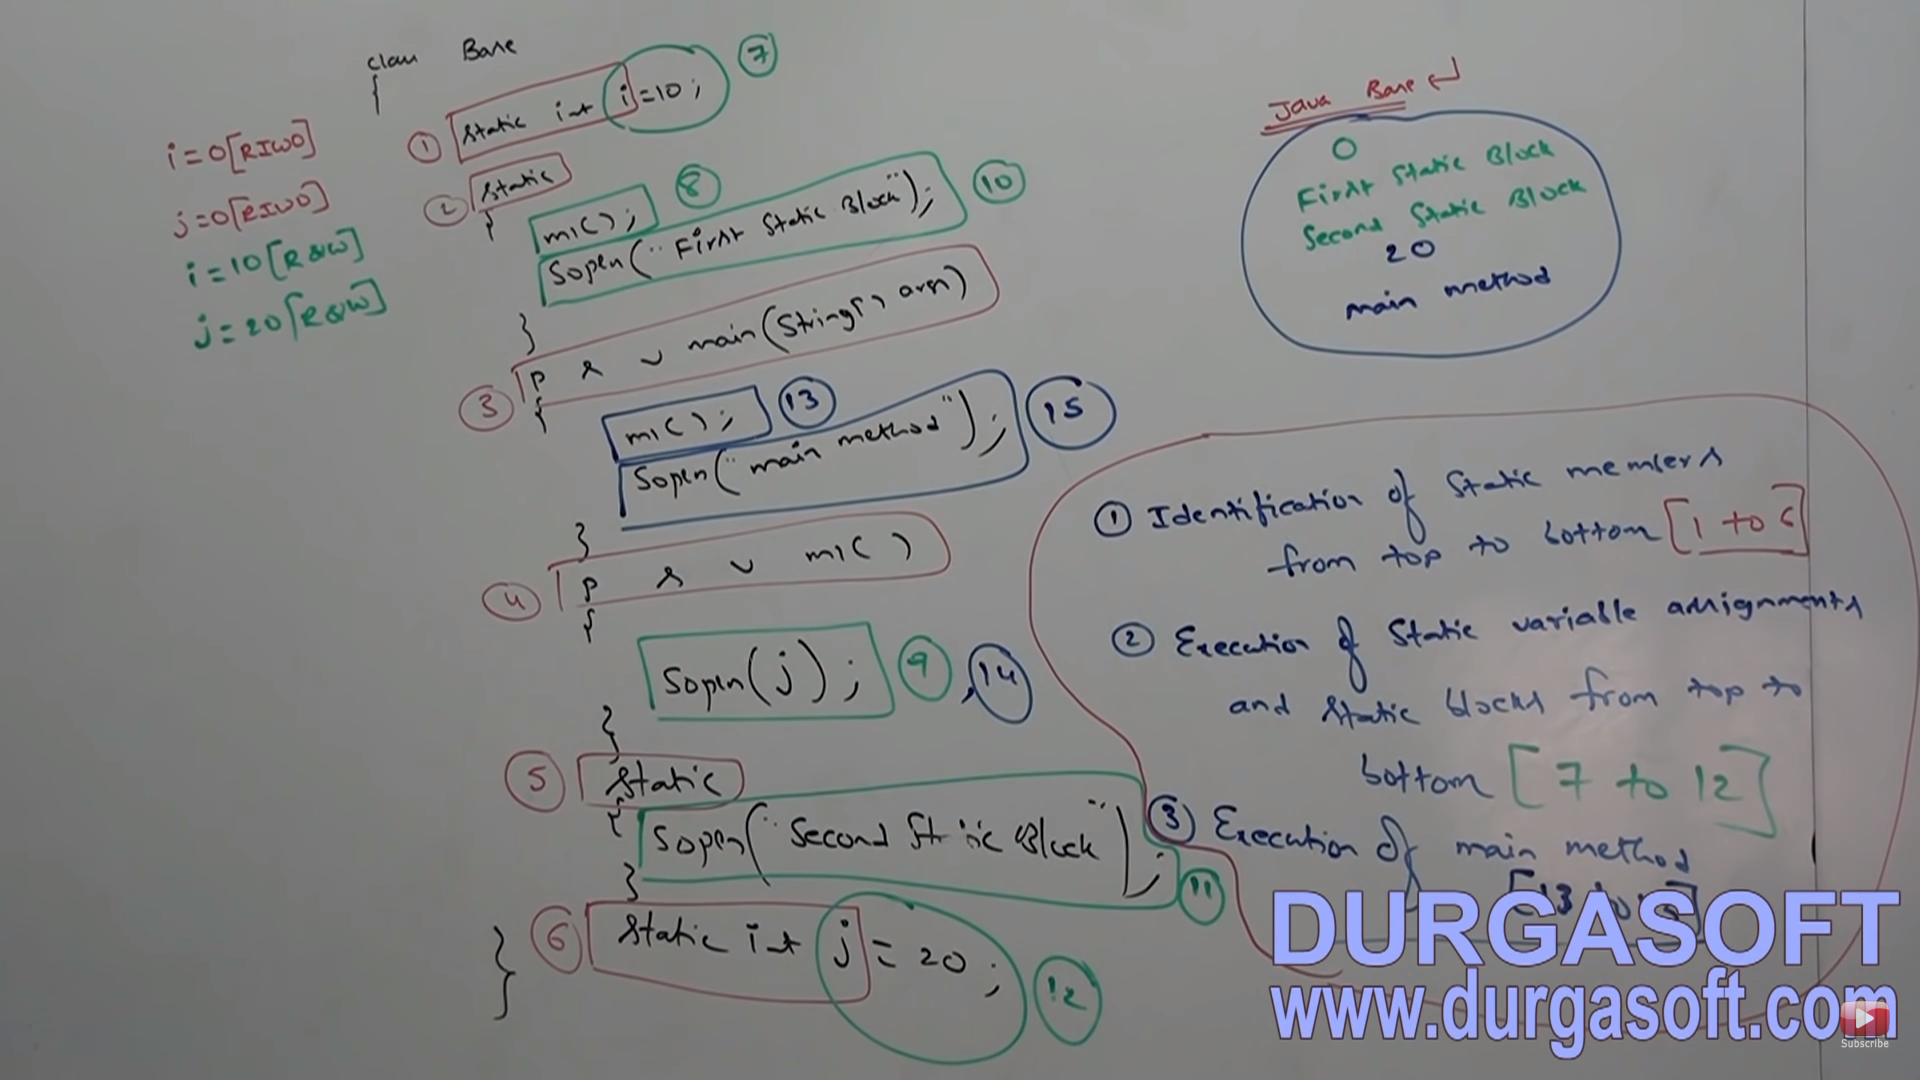 class Base
{
① static int i=10; ⑦
② static
{
m1(); ⑧
Sopln("First Static Block"); ⑩
}
③ p s v main(String[] args)
{
m1(); ⑬
Sopln("main method"); ⑮
}
④ p s v m1()
{
Sopln(j); ⑨, ⑭
}
⑤ static
{
Sopln("Second Static Block"); ⑪
}
⑥ static int j = 20; ⑫
}
i=0[RIWO]
j=0[RIWO]
i=10[R&W]
j=20[R&W]
Java Base ↵
0
First Static Block
Second Static Block
20
main method
① Identification of static members
from top to bottom [1 to 6]
② Execution of static variable assignments
and static blocks from top to
bottom [7 to 12]
③ Execution of main method
DURGASOFT
www.durgasoft.com
Subscribe